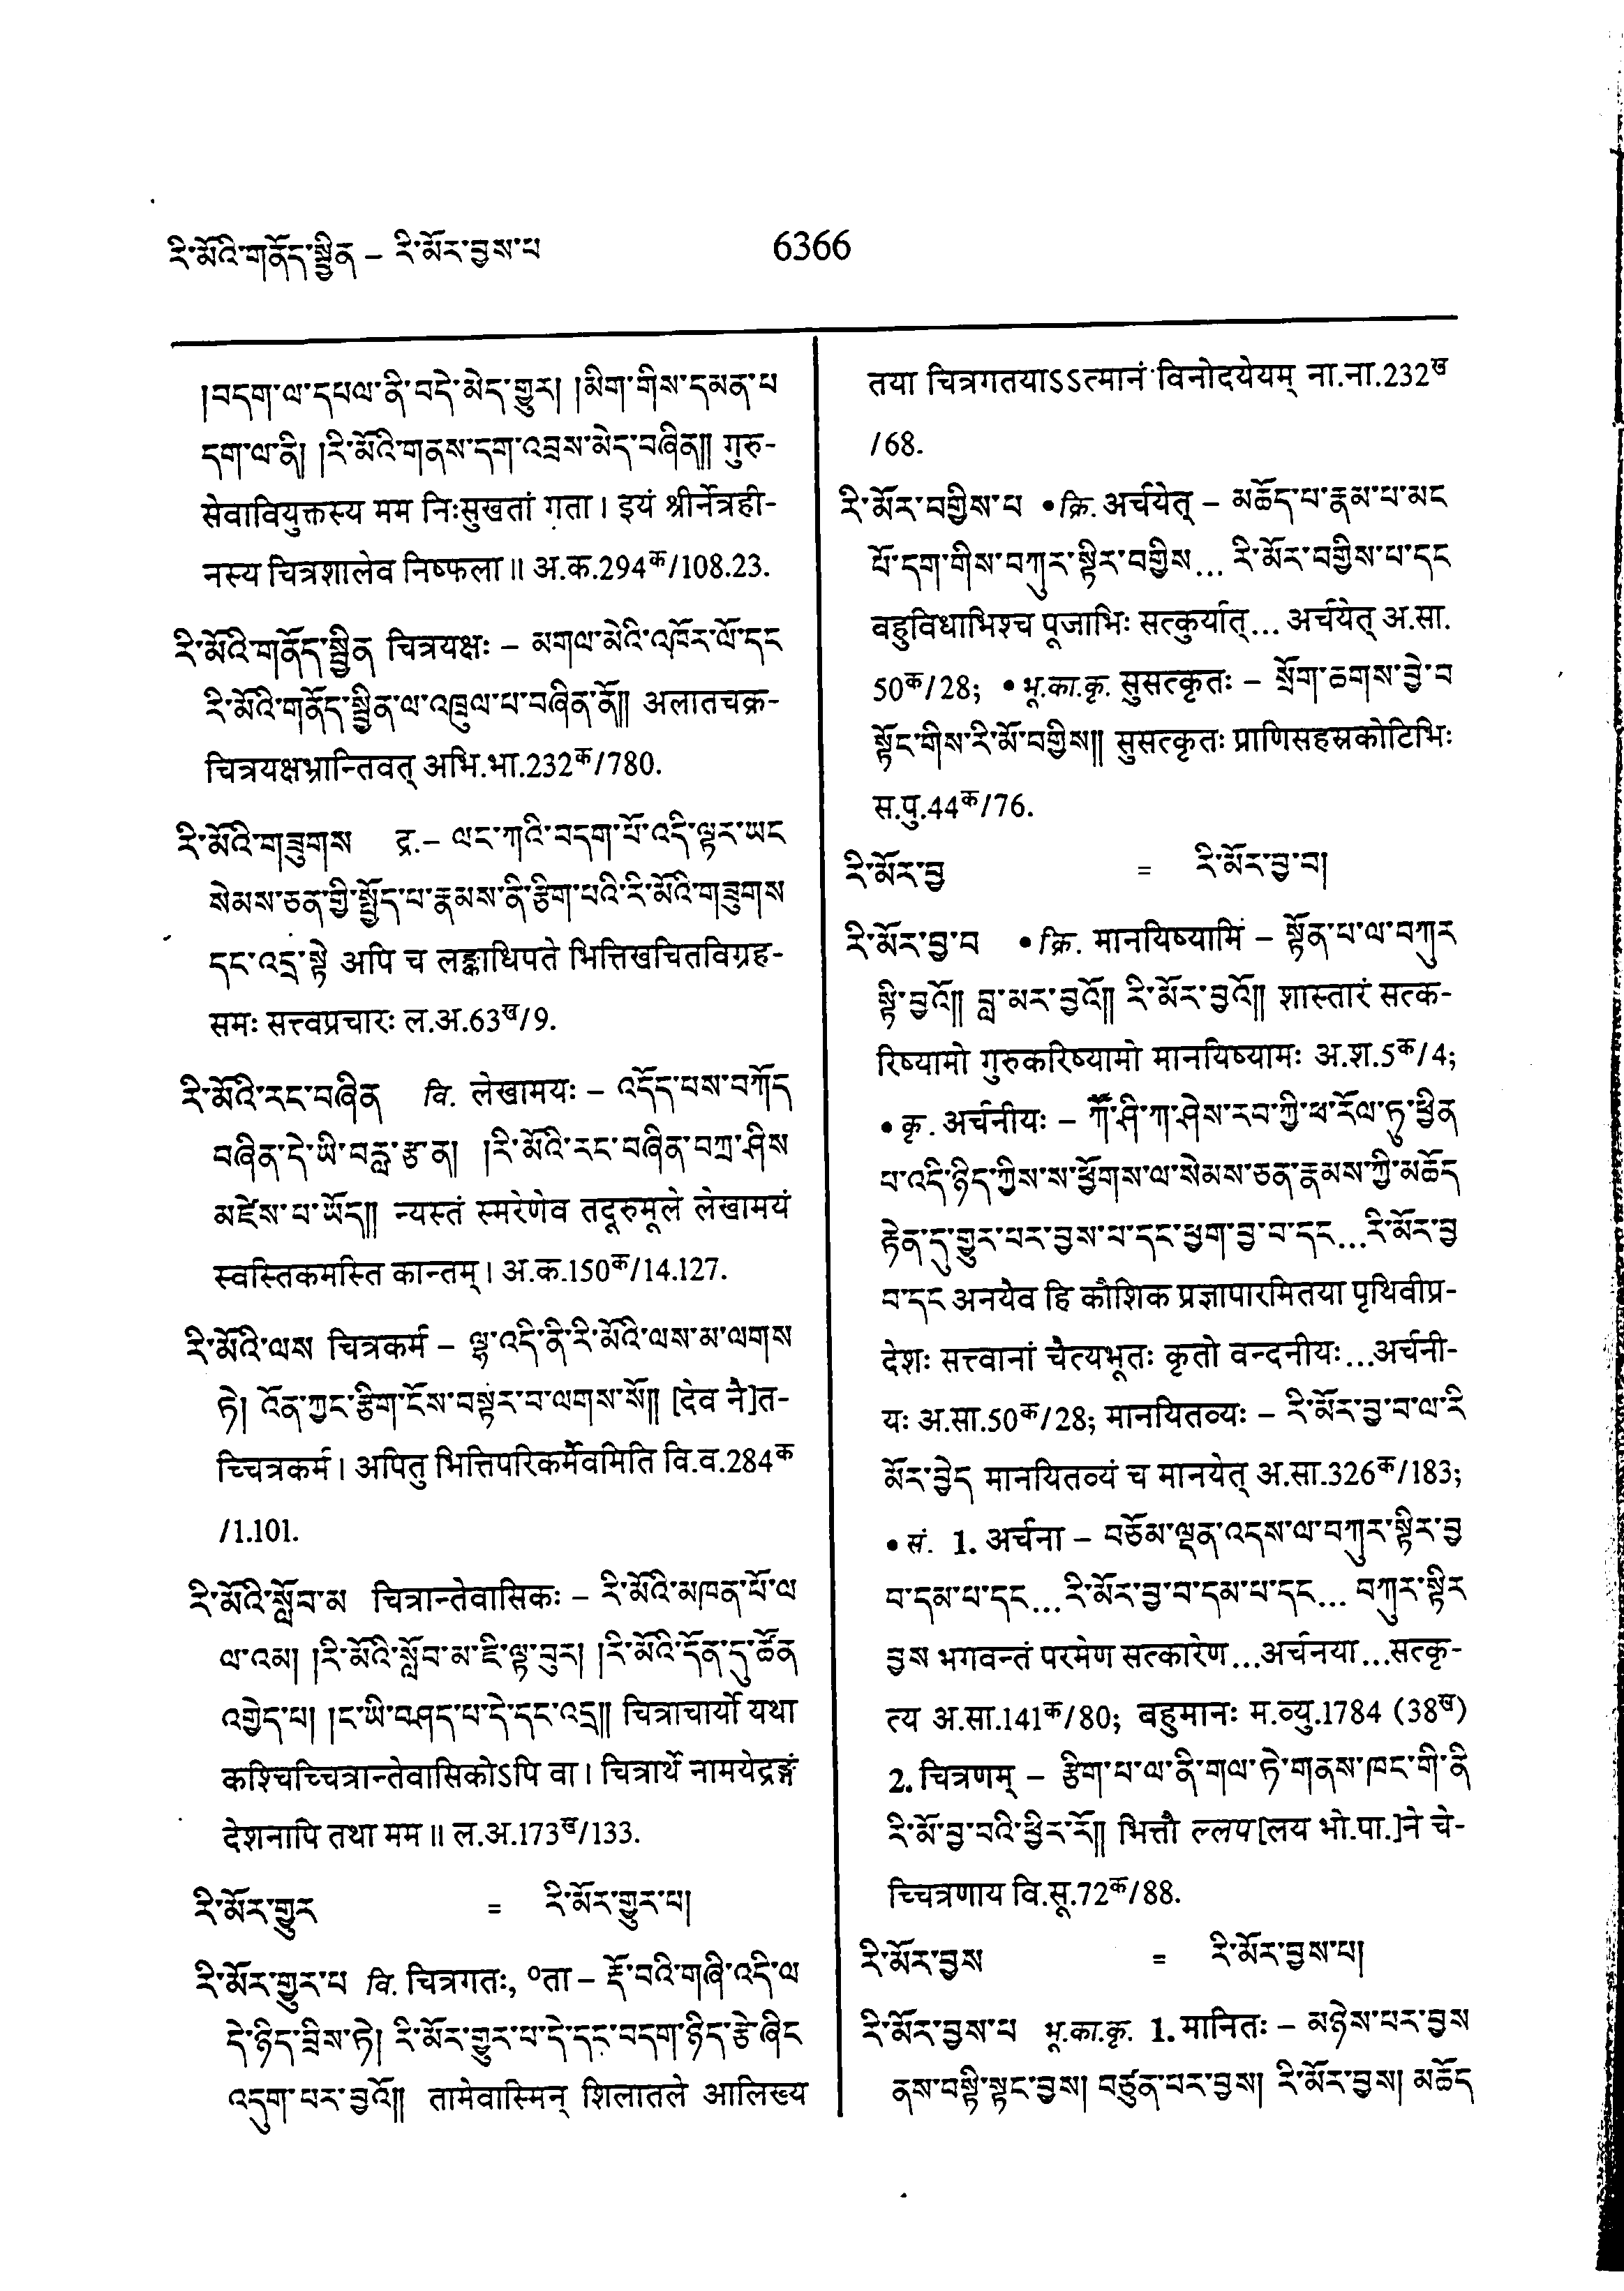 རི་མོའི་གནོད་སྦྱིན – རི་མོར་བྱས་པ
6366
།བདག་ལ་དཔལ་ནི་བདེ་མེད་གྱུར། །མིག་གིས་དམན་པ
དག་ལ་ནི། །རི་མོའི་གནས་དག་འབྲས་མེད་བཞིན།། गुरु-
सेवावियुक्तस्य मम निःसुखतां गता । इयं श्रीर्नेत्रही-
नस्य चित्रशालेव निष्फला ॥ अ.क.294क/108.23.
རི་མོའི་གནོད་སྦྱིན चित्रयक्षः – མགལ་མེའི་འཁོར་ལོ་དང
རི་མོའི་གནོད་སྦྱིན་ལ་འཁྲུལ་པ་བཞིན་ནོ།། अलातचक्र-
चित्रयक्षभ्रान्तिवत् अभि.भा.232क/780.
རི་མོའི་གཟུགས द्र.– ལང་ཀའི་བདག་པོ་འདི་ལྟར་ཡང
སེམས་ཅན་གྱི་སྤྱོད་པ་རྣམས་ནི་རྩིག་པའི་རི་མོའི་གཟུགས
དང་འདྲ་སྟེ अपि च लङ्काधिपते भित्तिखचितविग्रह-
समः सत्त्वप्रचारः ल.अ.63ख/9.
རི་མོའི་རང་བཞིན वि. लेखामयः – འདོད་པས་བཀོད
བཞིན་དེ་ཡི་བརླ་རྩ་ན། །རི་མོའི་རང་བཞིན་བཀྲ་ཤིས
མཛེས་པ་ཡོད།། न्यस्तं स्मरेणेव तदूरुमूले लेखामयं
स्वस्तिकमस्ति कान्तम् । अ.क.150क/14.127.
རི་མོའི་ལས चित्रकर्म – ལྷ་འདི་ནི་རི་མོའི་ལས་མ་ལགས
ཏེ། འོན་ཀྱང་རྩིག་ངོས་བསྟར་བ་ལགས་སོ།། [देव नै]त-
च्चित्रकर्म । अपितु भित्तिपरिकर्मैवमिति वि.व.284क
/1.101.
རི་མོའི་སློབ་མ चित्रान्तेवासिकः – རི་མོའི་མཁན་པོ་ལ
ལ་འམ། །རི་མོའི་སློབ་མ་ཇི་ལྟ་བུར། །རི་མོའི་དོན་དུ་ཚོན
འགྱེད་པ། །ང་ཡི་བཤད་པ་དེ་དང་འདྲ།། चित्राचार्यो यथा
कश्चिच्चित्रान्तेवासिकोऽपि वा । चित्रार्थे नामयेद्रङ्गं
देशनापि तथा मम ॥ ल.अ.173ख/133.
རི་མོར་གྱུར = རི་མོར་གྱུར་པ།
རི་མོར་གྱུར་པ वि. चित्रगतः, ०ता – རྡོ་བའི་གཞི་འདི་ལ
དེ་ཉིད་བྲིས་ཏེ། རི་མོར་གྱུར་པ་དེ་དང་བདག་ཉིད་རྩེ་ཞིང
འདུག་པར་བྱའོ།། तामेवास्मिन् शिलातले आलिख्य
तया चित्रगतयाऽऽत्मानं विनोदयेयम् ना.ना.232ख
/68.
རི་མོར་བགྱིས་པ • क्रि. अर्चयेत् – མཆོད་པ་རྣམ་པ་མང
པོ་དག་གིས་བཀུར་སྟིར་བགྱིས... རི་མོར་བགྱིས་པ་དང
बहुविधाभिश्च पूजाभिः सत्कुर्यात्... अर्चयेत् अ.सा.
50क/28; • भू.का.कृ. सुसत्कृतः – སྲོག་ཆགས་བྱེ་བ
སྟོང་གིས་རི་མོ་བགྱིས།། सुसत्कृतः प्राणिसहस्रकोटिभिः
स.पु.44क/76.
རི་མོར་བྱ = རི་མོར་བྱ་བ།
རི་མོར་བྱ་བ • क्रि. मानयिष्यामि – སྟོན་པ་ལ་བཀུར
སྟི་བྱའོ།། བླ་མར་བྱའོ།། རི་མོར་བྱའོ།། शास्तारं सत्क-
रिष्यामो गुरुकरिष्यामो मानयिष्यामः अ.श.5क/4;
• कृ. अर्चनीयः – ཀཽ་ཤི་ཀ་ཤེས་རབ་ཀྱི་ཕ་རོལ་ཏུ་ཕྱིན
པ་འདི་ཉིད་ཀྱིས་ས་ཕྱོགས་ལ་སེམས་ཅན་རྣམས་ཀྱི་མཆོད
རྟེན་དུ་གྱུར་པར་བྱས་པ་དང་ཕྱག་བྱ་བ་དང...རི་མོར་བྱ
བ་དང अनयैव हि कौशिक प्रज्ञापारमितया पृथिवीप्र-
देशः सत्त्वानां चैत्यभूतः कृतो वन्दनीयः...अर्चनी-
यः अ.सा.50क/28; मानयितव्यः – རི་མོར་བྱ་བ་ལ་རི
མོར་བྱེད मानयितव्यं च मानयेत् अ.सा.326क/183;
• सं. 1. अर्चना – བཅོམ་ལྡན་འདས་ལ་བཀུར་སྟིར་བྱ
བ་དམ་པ་དང...རི་མོར་བྱ་བ་དམ་པ་དང... བཀུར་སྟིར
བྱས भगवन्तं परमेण सत्कारेण...अर्चनया...सत्कृ-
त्य अ.सा.141क/80; बहुमानः म.व्यु.1784 (38ख)
2. चित्रणम् – རྩིག་པ་ལ་ནི་གལ་ཏེ་གནས་ཁང་གི་ནི
རི་མོ་བྱ་བའི་ཕྱིར་རོ།། भित्तौ ल्लप[लय भो.पा.]ने चे-
च्चित्रणाय वि.सू.72क/88.
རི་མོར་བྱས = རི་མོར་བྱས་པ།
རི་མོར་བྱས་པ भू.का.कृ. 1. मानितः – མཉེས་པར་བྱས
ནས་བསྟི་སྟང་བྱས། བཙུན་པར་བྱས། རི་མོར་བྱས། མཆོད